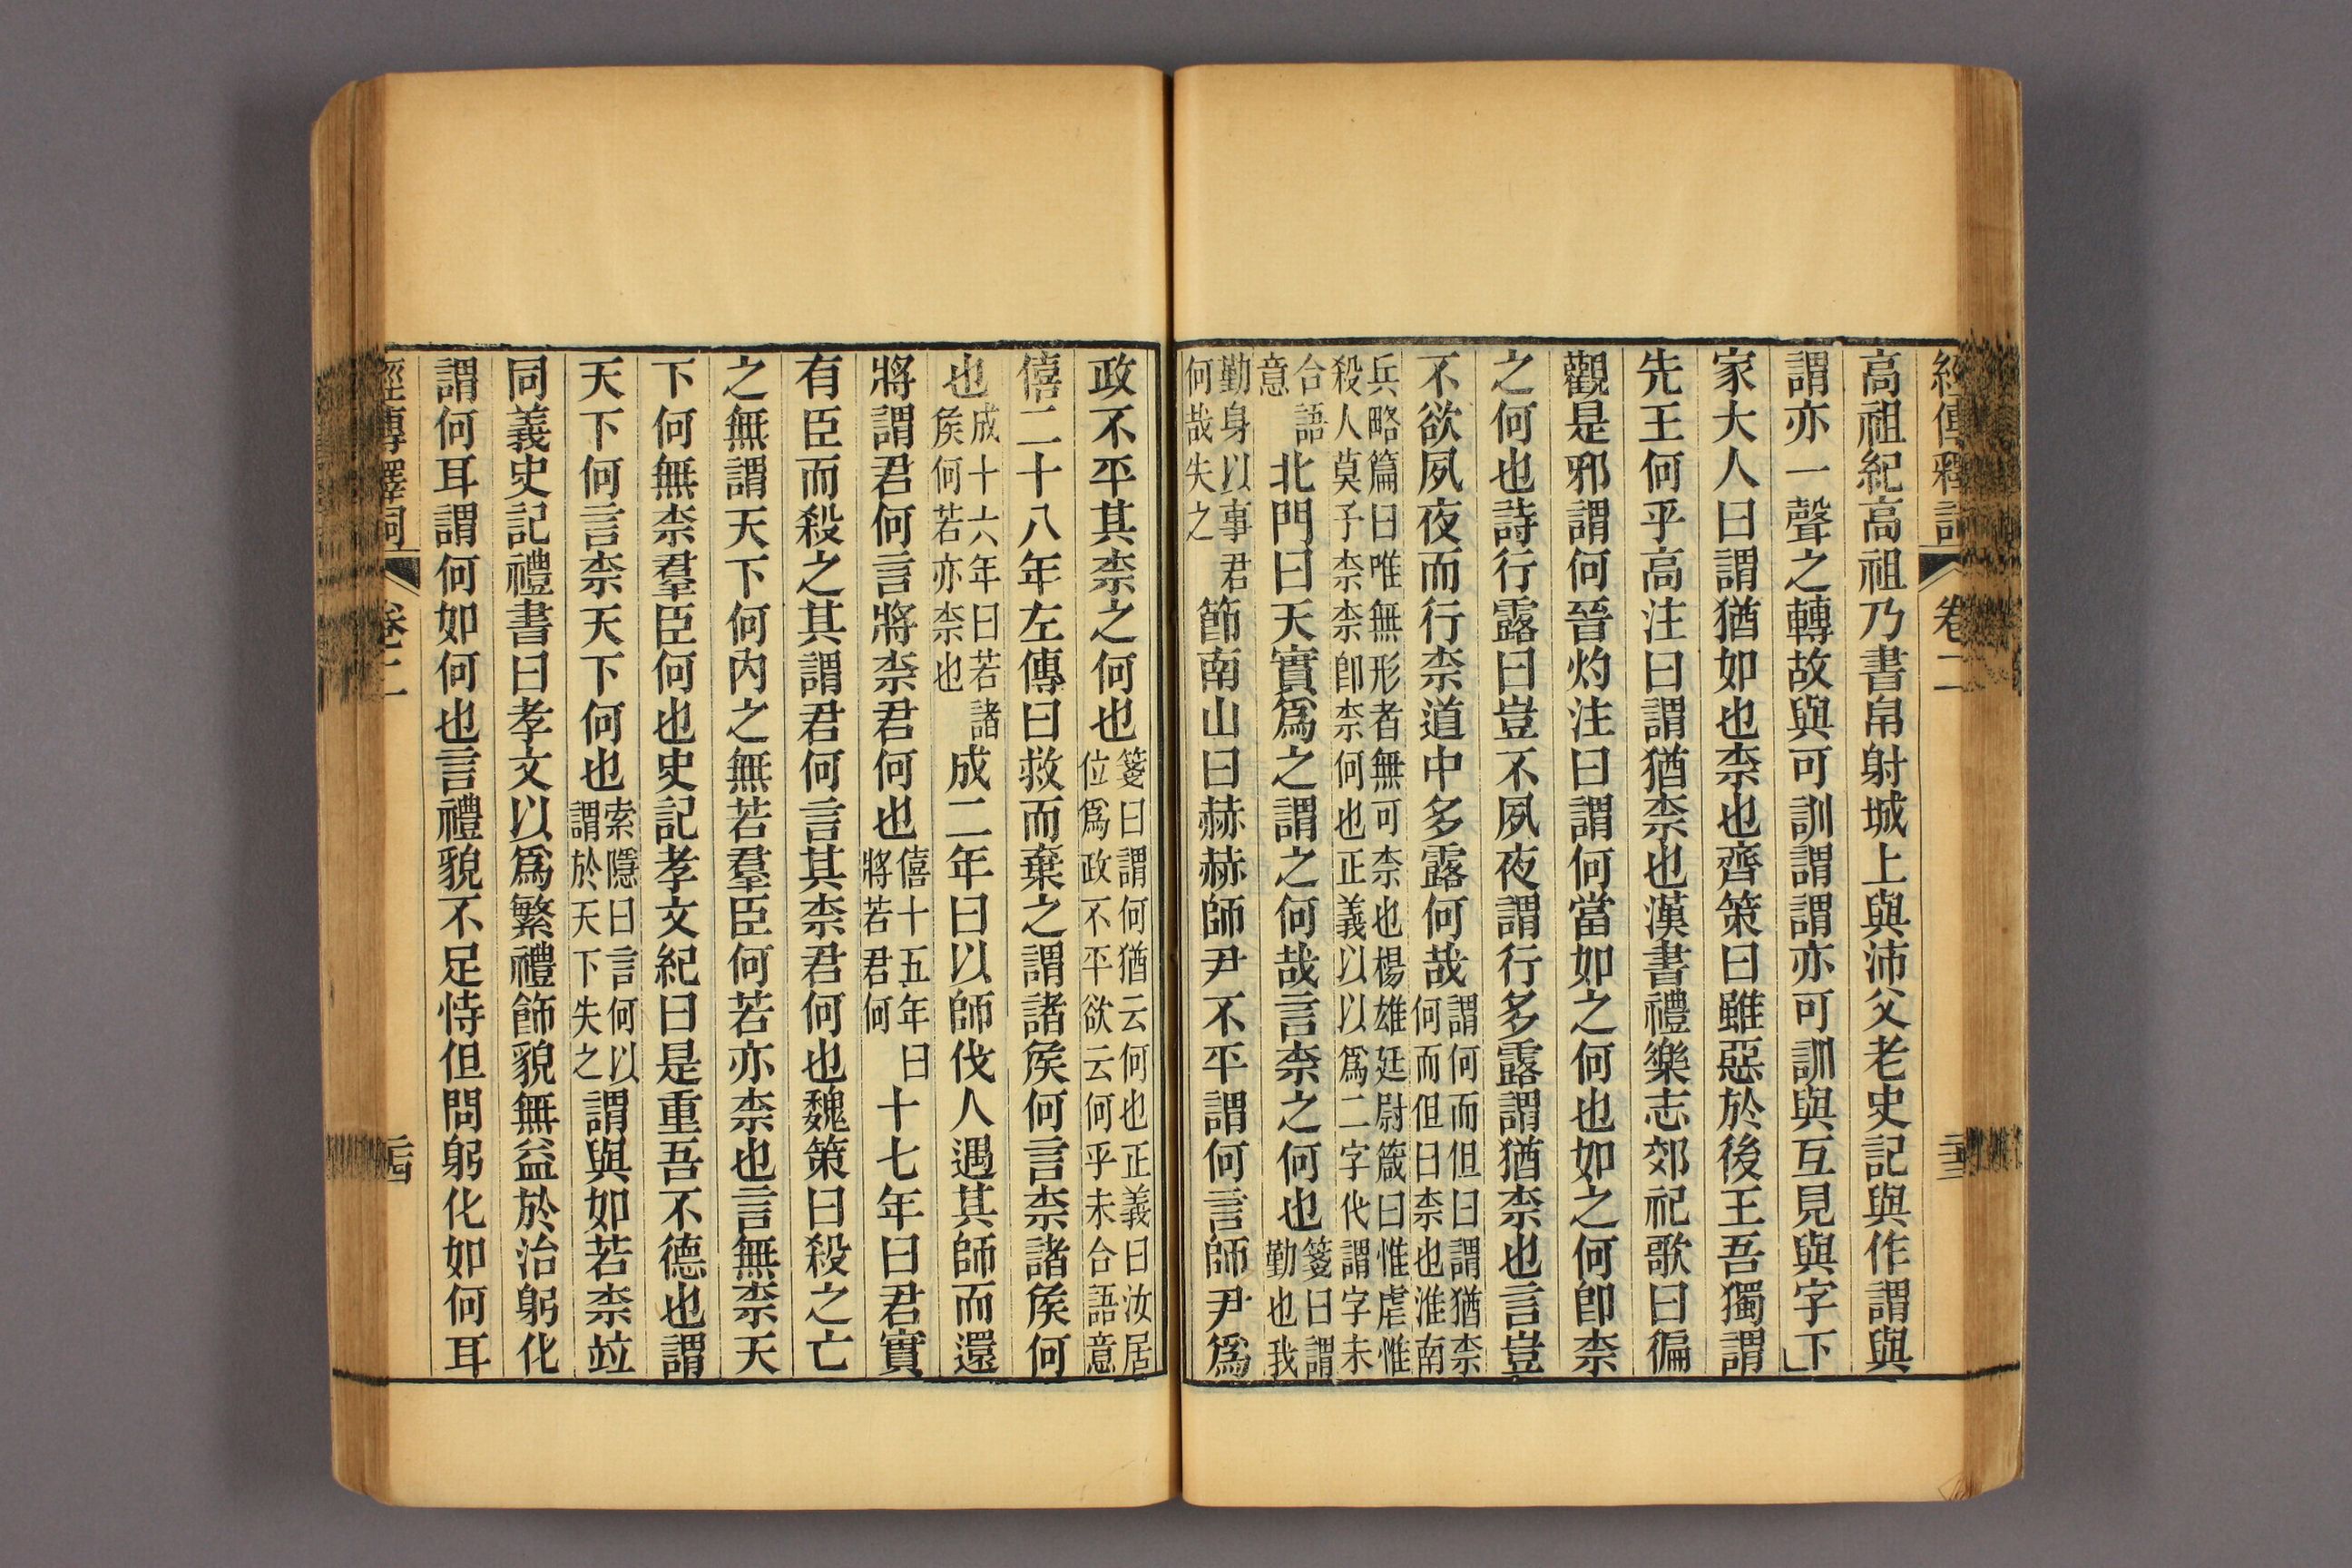 經傳釋詞 卷二 二十三
高祖紀高祖乃書帛射城上與沛父老史記與作謂與
謂亦一聲之轉故與可訓謂謂亦可訓與互見與字下
家大人曰謂猶如也柰也齊策曰雖惡於後王吾獨謂
先王何乎高注曰謂猶柰也漢書禮樂志郊祀歌曰徧
觀是邪謂何晉灼注曰謂何當如之何也如之何卽柰
之何也詩行露曰豈不夙夜謂行多露謂猶柰也言豈
不欲夙夜而行柰道中多露何哉謂何而但曰謂猶柰
何而但曰柰也淮南
兵略篇曰唯無形者無可柰也楊雄廷尉箴曰惟虐惟
殺人莫予柰柰卽柰何也正義以以爲二字代謂字未
合語
意
北門曰天實爲之謂之何哉言柰之何也箋曰謂
勤也我
勤身以事君
何哉失之
節南山曰赫赫師尹不平謂何言師尹爲
政不平其柰之何也箋曰謂何猶云何也正義曰汝居
位爲政不平欲云何乎未合語意
僖二十八年左傳曰救而棄之謂諸矦何言柰諸矦何
也成十六年曰若諸
矦何若亦柰也
成二年曰以師伐人遇其師而還
將謂君何言將柰君何也僖十五年曰
將若君何
十七年曰君實
有臣而殺之其謂君何言其柰君何也魏策曰殺之亡
之無謂天下何內之無若羣臣何若亦柰也言無柰天
下何無柰羣臣何也史記孝文紀曰是重吾不德也謂
天下何言柰天下何也索隱曰言何以
謂於天下失之
謂與如若柰竝
同義史記禮書曰孝文以爲繁禮飾貌無益於治躬化
謂何耳謂何如何也言禮貌不足恃但問躬化如何耳
經傳釋詞 卷二 二十四